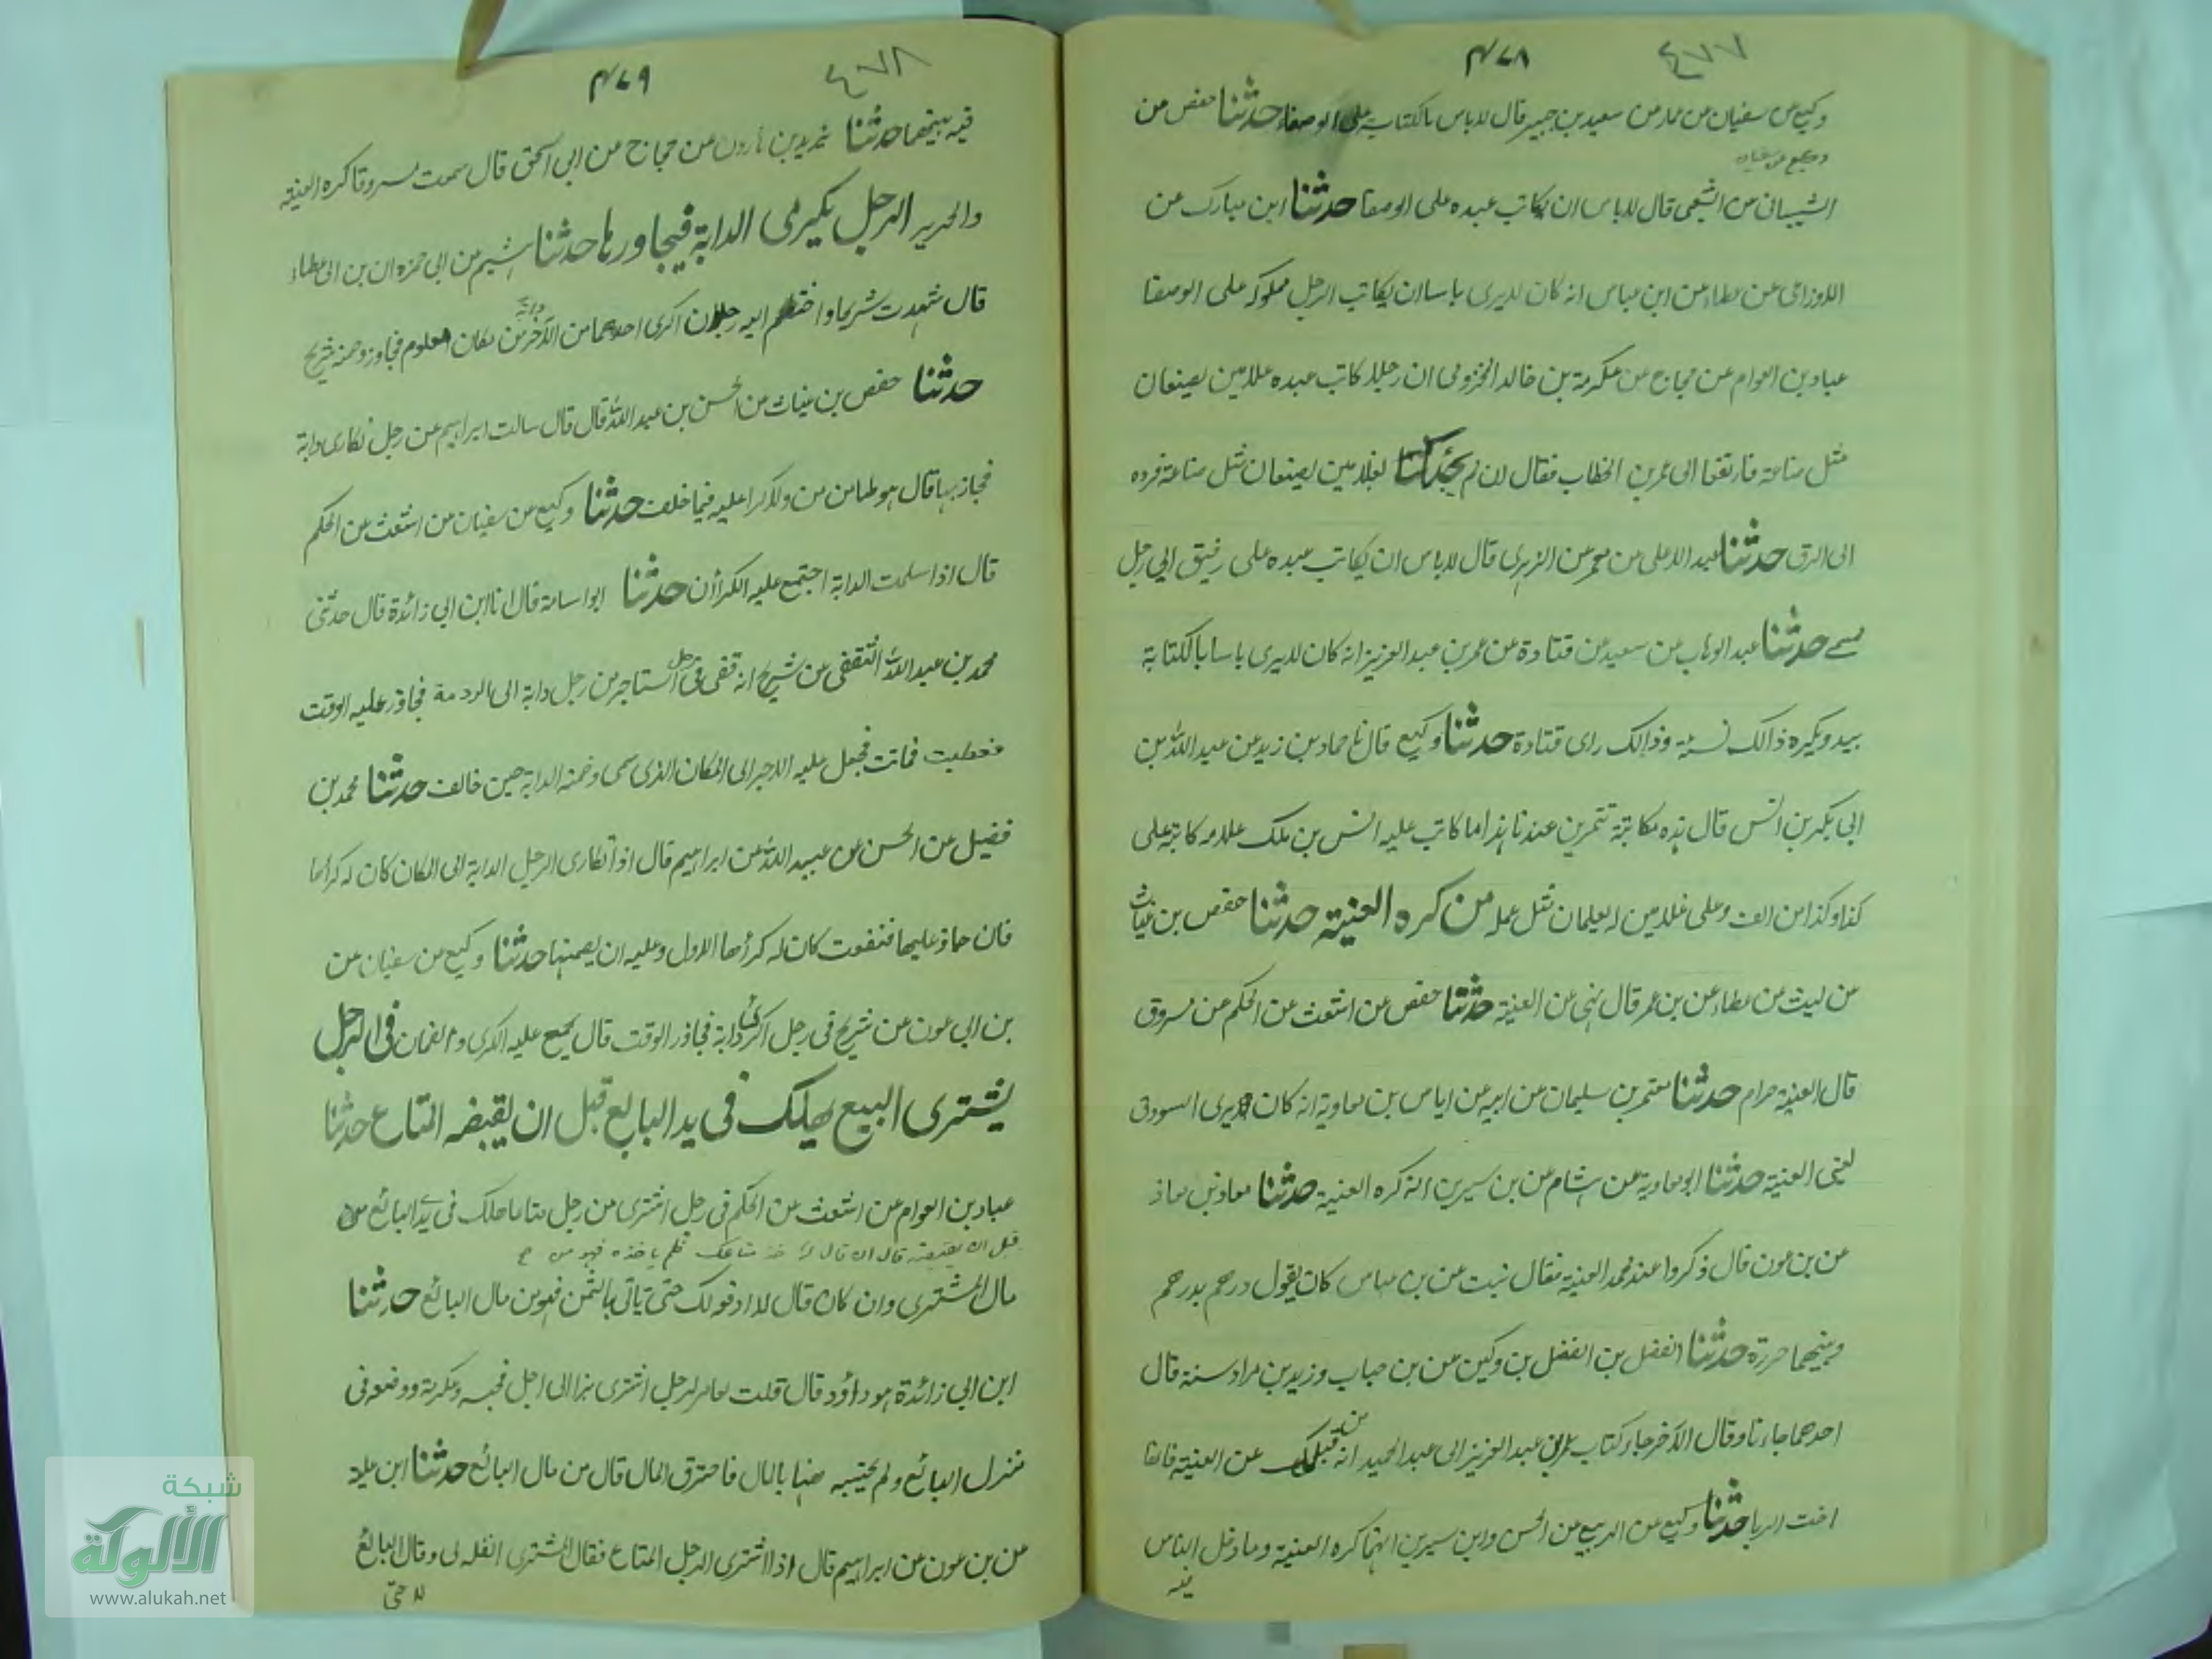 ٤٧٧ ٤٧٨
وكيع من سفيان من سعيد بن جبير قال لا باس بالكتابة على الوصفاء حدثنا حفص من
وكيع عن سفيان
الشيباني من الشعبي قال لا باس ان يكاتب عبده على الوصفا حدثنا ابن مبارك عن
الاوزاعي عن عطاء عن ابن عباس انه كان لا يرى باسا ان يكاتب الرجل مملوكه على الوصفا
عباد بن العوام عن حجاج عن عكرمة بن خالد المخزومي ان رجلا كاتب عبده غلامين يصنعان
مثل صناعة فارتفعا الى عمر بن الخطاب فقال ان لم لغلامين يصنعان مثل صناعة فرده
الى الرق حدثنا عبد الاعلى من معمر عن الزهري قال لا باس ان يكاتب عبده على رفيق الى رجل
حدثنا عبد الوهاب من سعيد من قتادة عن عمر بن عبد العزيز انه كان لا يرى باسا بالكتابة
بيد ويكره ذالك نسية وذالك راى قتادة حدثنا وكيع قال نا حماد بن زيد من عبيد الله بن
ابي بكر بن انس قال هذه مكاتبة عندنا هذا ما كاتب عليه انس بن ملك غلامه كاتبه على
كذا وكذا من الف وعلى غلامين يعلمان مثل عمله من كره العنية حدثنا حفص بن غياث
من ليث من عطاء عن بن عمر قال نهي عن العنية حدثنا حفص عن اشعث عن الحكم من مسروق
قال العنية حرام حدثنا معتمر بن سليمان من ابيه من اياس بن معاوية انه كان يرى السودق
يعني العنية حدثنا ابو معاوية عن هشام من بن سيرين انه كره العنية حدثنا معاذ بن معاذ
عن بن عون قال ذكروا عند محمد العنية فقال نبت عن بن عباس كان يقول درهم بدرهم
وبينهما حريرة حدثنا الفضل بن الفضل بن وكين عن بن حباب وزيد بن مرادسنة قال
احدهما جاءنا وقال الآخر جاء كتاب عمر بن عبد العزيز الى عبد الحميد انه من قبلك عن العنية فانها
اخت الربا حدثنا وكيع عن الربيع من الحسن وابن سيرين انهما كره العنية وما دخل الناس
فيه
٤٧٨ ٤٧٩
فيه بينهما حدثنا يزيد بن هارون عن حجاج من ابي اسحق قال سمعت مسروقا كره العنية
والحرير الرجل يكرى الدابة فيجاوزها حدثنا هشيم من ابي حمزه ان بن ابي عطاء
قال شهدت شريحا واختصم اليه رجلان اكرى احدهما من الآخر دابة مكان معلوم فجاوز وضمنه شريح
حدثنا حفص بن غياث من الحسن بن عبد الله قال قال سالت ابراهيم عن رجل تكارى دابة
فجاز بها قال هو ضامن من ولا كرا عليه فيما خلف حدثنا وكيع من سفيان من اشعث من الحكم
قال اذا سلمت الدابة اجتمع عليه الكراأن حدثنا ابو اسامة قال انا ابن ابي زائدة قال حدثني
محمد بن عبيد الله الثقفي من شريح انه قضى في رجل استاجر من رجل دابة الى الردمة فجاوز عليه الوقت
فعطبت فماتت فجعل عليه الاجر الى المكان الذي سمى وضمنه الدابة حين خالف حدثنا محمد بن
فضيل عن الحسن عن عبيد الله من ابراهيم قال اذا تكارى الرجل الدابة الى المكان كان له كراها
فان جاوز عليها فنفقت كان له كرأها الاول وعليه ان يضمنها حدثنا وكيع من سفيان عن
بن ابي عون عن شريح في رجل اكرى دابة فجاوز الوقت قال يجمع عليه الكرى والضمان في الرجل
يشترى البيع يهلك في يد البايع قبل ان يقبضه المتاع حدثنا
عباد بن العوام من اشعث عن الحكم في رجل اشترى من رجل متاعا هلك في يد البائع
قبل ان يقبضه قال ان قال له خذ متاعك فلم ياخذه فهو من
مال المشترى وان كان قال لا ادفع لك حتى تاتى بالثمن فهو من مال البائع حدثنا
ابن ابي زائدة هو داؤد قال قلت لعامر لرجل اشترى بزا الى اجل فحبسه وعكرمة ووضعه في
منزل البائع ولم يحتبسه رهنا بالمال فاحترق المال قال من مال البائع حدثنا ابن علية
عن بن عون عن ابراهيم قال اذا اشترى الرجل المتاع فقال المشترى انقله لى وقال البائع
لا حتى
شبكة
الألوكة
www.alukah.net